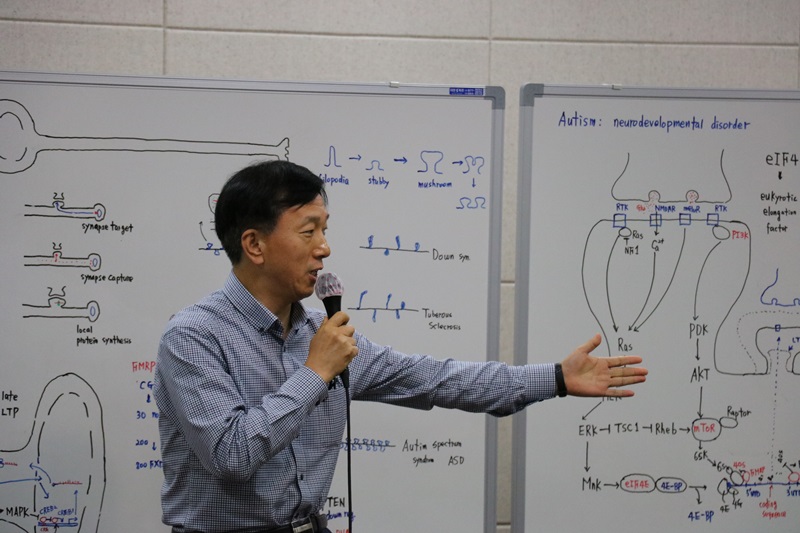 stubby
mushroom
synapse target
synapse capture
local
protein synthesis
Down syn
Tuberous
Sclerosis
late
LTP
FMRP
CG
30
200
MAPK
Autism spectrum
syndrom ASD
Autism: neurodevelopmental disorder
RTK
NMDAR
mGluR
RTK
Ras
NF1
Ca2+
PI3K
eIF4
eukyrotic
elongation
factor
PDK
Ras
AKT
ERK
TSC1
Rheb
mTOR
Raptor
S6K
Mnk
eIF4E
4E-BP
4E-BP
4E
40S
5'UTR
coding
sequence